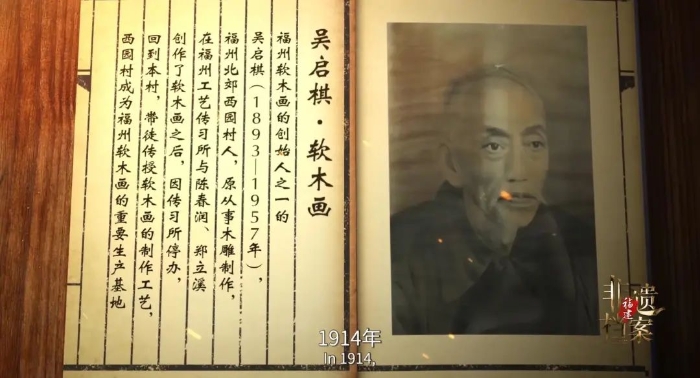 吴启棋·软木画
福州软木画的创始人之一的
吴启棋（1893—1957年），
福州北郊西园村人，原从事木雕制作，
在福州工艺传习所与陈春润、郑立溪
创作了软木画之后，因传习所停办，
回到本村，带徒传授软木画的制作工艺，
西园村成为福州软木画的重要生产基地
非遗
福建
档案
1914年
In 1914,